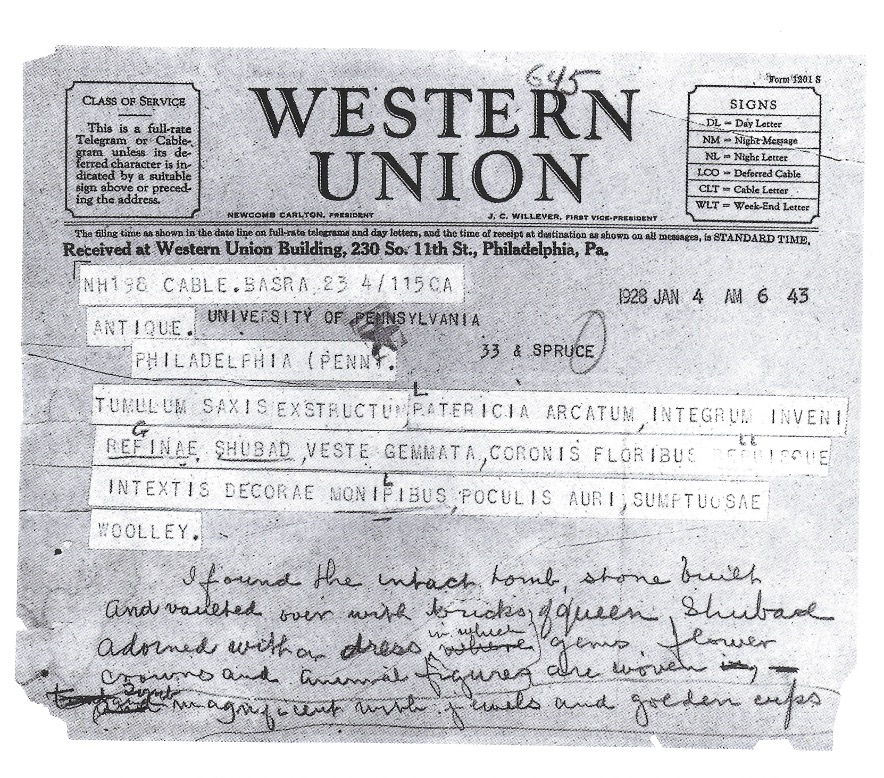 645
Form 1201 S
CLASS OF SERVICE
This is a full-rate
Telegram or Cable-
gram unless its de-
ferred character is in-
dicated by a suitable
sign above or preced-
ing the address.
WESTERN
UNION
NEWCOMB CARLTON, PRESIDENT
J. C. WILLEVER, FIRST VICE-PRESIDENT
SIGNS
DL = Day Letter
NM = Night Message
NL = Night Letter
LCO = Deferred Cable
CLT = Cable Letter
WLT = Week-End Letter
The filing time as shown in the date line on full-rate telegrams and day letters, and the time of receipt at destination as shown on all messages, is STANDARD TIME.
Received at Western Union Building, 230 So. 11th St., Philadelphia, Pa.
NH198 CABLE.BASRA 23 4/115CA
1928 JAN 4 AM 6 43
ANTIQUE. UNIVERSITY OF PENNSYLVANIA
PHILADELPHIA (PENNY. 33 & SPRUCE
L
TUMULUM SAXIS EXSTRUCTUM PATERICIA ARCATUM, INTEGRUM INVENI
G LL
REFINAE SHUBAD, VESTE GEMMATA, CORONIS FLORIBUS
L
INTEXTIS DECORAE MONIPIBUS, POCULIS AURI, SUMPTUOSAE
WOOLLEY.
I found the intact tomb, stone built
and vaulted over with bricks, of queen Shubad
adorned with a dress in which gems, flower
crowns and animal figures are woven
Tomb magnificent with jewels and golden cups